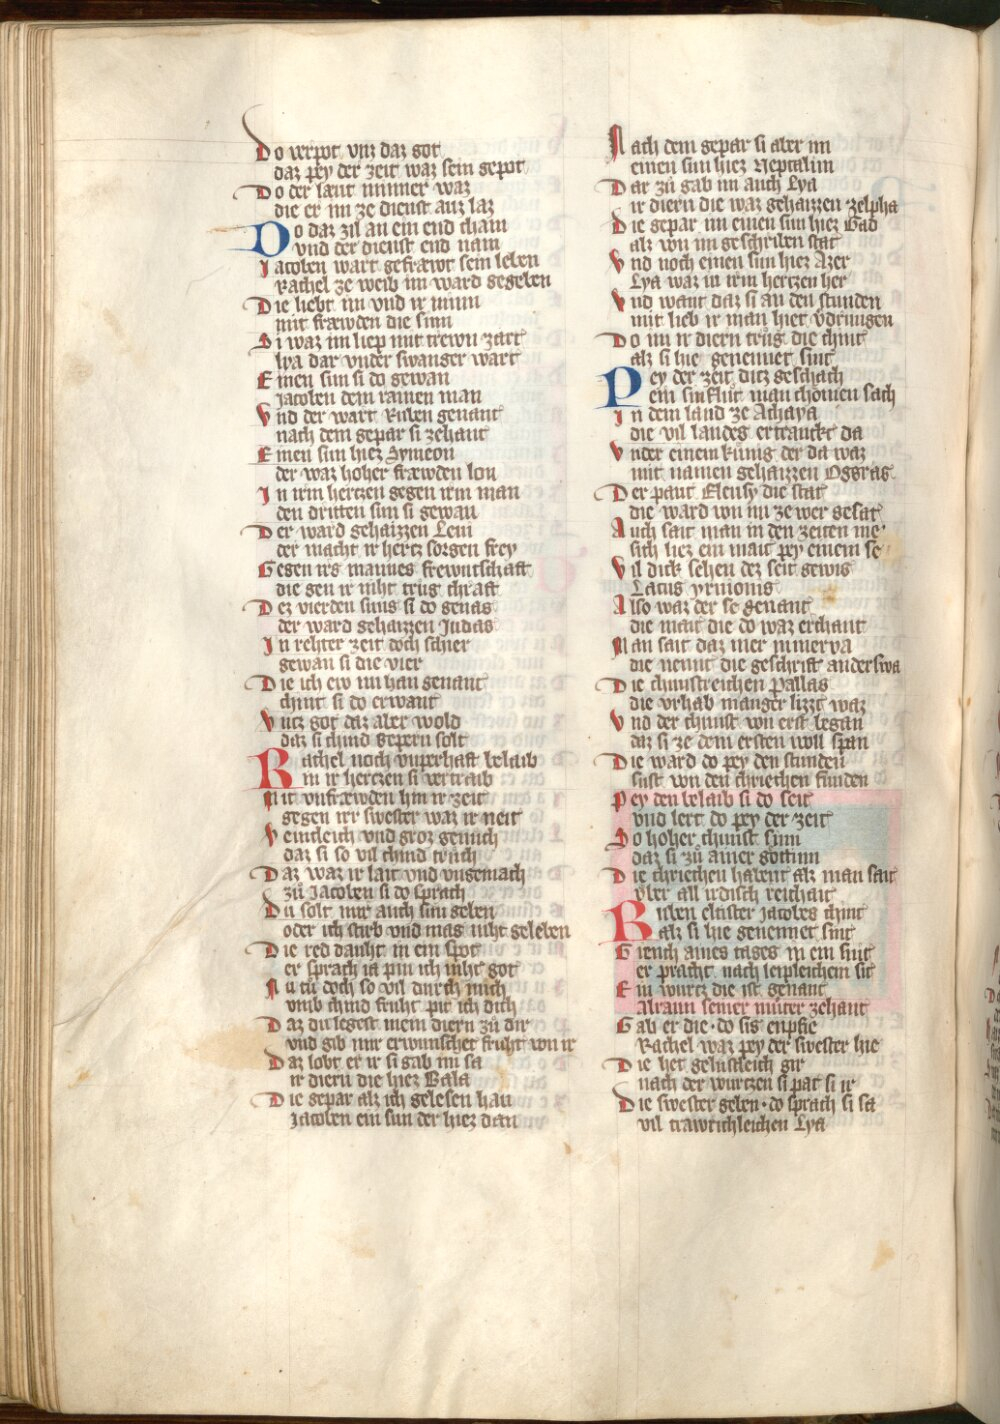 Do verpot vnz daz got
daz pey der zeit waz sein gepot
Do der sænt nimmer waz
die er im ze dienst auz laz
Do daz zil an ein end cham
vnd der dienst end nam
Jacoben wart gefræwt sein leben
Rachel ze weib im ward gegeben
Die liebt im vnd ir minn
mit fræwden die sinn
Si waz im liep mit trewn zart
lya dar vnder swanger wart
Einen sun si do gewan
Jacoben dem rainen man
Vnd der wart Ruben genant
nach dem gepar si zehant
Einen sun hiez Symeon
der waz hoher fræwden lon
In irm hertzen gegen irm man
den dritten sun si gewan
Der ward gehaizzen Leui
der macht ir hertz sorgen frey
Gegen irs mannes frewntschaft
die gen ir niht trug chraft
Dez vierden suns si do genas
der ward gehaizzen Judas
In rehter zeit doch schier
gewan si die vier
Die ich ew nu han genant
chint si do erwant
Vntz got daz aber wold
daz si chind gepern solt
Rachel noch vnperhaft belaib
in ir hertzen si vertraib
Mit vnfræwden hin ir zeit
gegen irr swester waz ir neit
Veintleich vnd groz genuch
daz si so vil chind truch
Daz waz ir lait vnd vngemach
zů Jacoben si do sprach
Du solt mir auch sun geben
oder ich stirb vnd mag niht geleben
Die red dauht in ein spot
er sprach ia pin ich niht got
Nu tů doch so vil durch mich
vmb chind fruht pit ich dich
Daz du legest mein diern zů dir
vnd gib mir erwunschet fruht von ir
Daz lobt er ir si gab im sa
ir diern die hiez Bala
Die gepar alz ich gelesen han
Jacoben ein sun der hiez dan
Nach dem gepar si aber im
einen sun hiez Neptalim
Dar zů gab im auch Lya
ir diern die waz gehaizzen zelpha
Die gepar im einen sun hiez Gad
alz von im geschriben stat
Vnd noch einen sun hiez Azer
Lya waz in irm hertzen her
Vnd want daz si an den stunden
mit lieb ir man hiet vberuugen
Do im ir diern trůg die chint
alz si hie genennet sint
Pey der zeit ditz geschach
ein sinfluͤt man chomen sach
In dem land ze Achaya
die vil landes ertranckt da
Vnder einem kůnig der da waz
mit namen gehaizzen Oggras
Der paut Eleusy die stat
die ward von im ze wer gesat
Auch sait man in den zeiten me
sich liez ein mait pey einem se
Vil dick sehen dez seit gewis
Lacus yrmonis
Also waz der se genant
die mait die do waz erchant
Man sait daz mer minerva
die nennt die geschrift anderswa
Die chunstreichen Pallas
die vrhab manger lizzt waz
Vnd der chunst von erst began
daz si ze dem ersten woll span
Die ward do pey den stunden
sust von den chriechen funden
Pey den belaib si do seit
vnd lert do pey der zeit
So hoher chunst sinn
daz si zů ainer göttinn
Die chriechen habent alz man sait
vber all irdisch reichait
Ruben eltister Jacobes chint
alz si hie genennet sint
Giench aines tages in ein snit
er praht nach leipleichem sit
Ein wurtz die ist genant
Alraun seiner můter zehant
Gab er die do sis enpfie
Rachel waz pey der swester hie
Die het gelustleich gir
nach der wurtzen si pat si ir
Die swester geben do sprach si sa
vil trawrichleichen Lya